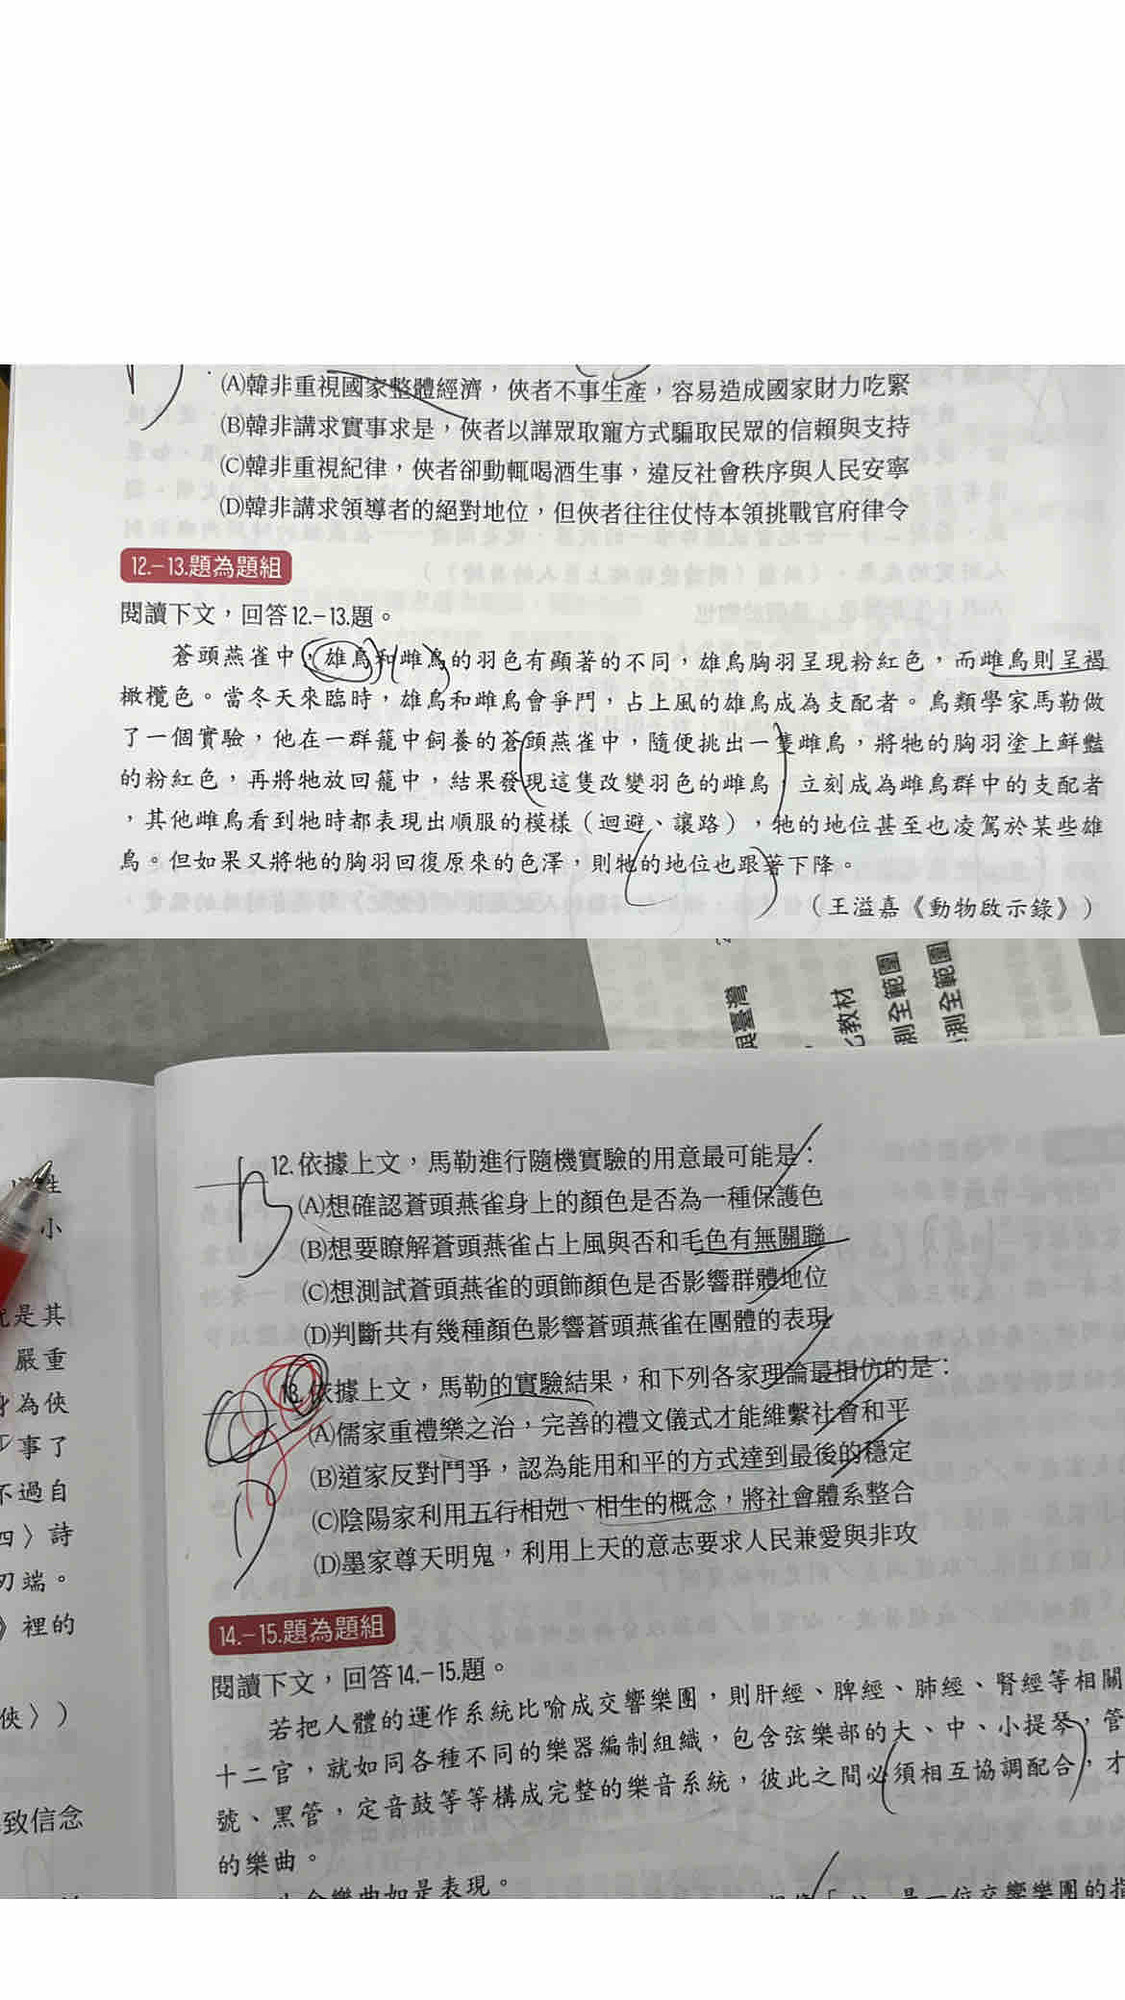 (A)韓非重視國家整體經濟，俠者不事生產，容易造成國家財力吃緊
(B)韓非講求實事求是，俠者以譁眾取寵方式騙取民眾的信賴與支持
(C)韓非重視紀律，俠者卻動輒喝酒生事，違反社會秩序與人民安寧
(D)韓非講求領導者的絕對地位，但俠者往往仗恃本領挑戰官府律令
12.-13.題為題組
閱讀下文，回答12.-13.題。
蒼頭燕雀中，雄鳥和雌鳥的羽色有顯著的不同，雄鳥胸羽呈現粉紅色，而雌鳥則呈褐
橄欖色。當冬天來臨時，雄鳥和雌鳥會爭鬥，占上風的雄鳥成為支配者。鳥類學家馬勒做
了一個實驗，他在一群籠中飼養的蒼頭燕雀中，隨便挑出一隻雌鳥，將牠的胸羽塗上鮮豔
的粉紅色，再將牠放回籠中，結果發現這隻改變羽色的雌鳥，立刻成為雌鳥群中的支配者
，其他雌鳥看到牠時都表現出順服的模樣（迴避、讓路），牠的地位甚至也凌駕於某些雄
鳥。但如果又將牠的胸羽回復原來的色澤，則牠的地位也跟著下降。
（王溢嘉《動物啟示錄》）
與臺灣
化教材
測全範圍
測全範圍
性
小
就是其
嚴重
身為俠
事了
不過自
四〉詩
刃端。
》裡的
俠〉）
致信念
12.依據上文，馬勒進行隨機實驗的用意最可能是：
(A)想確認蒼頭燕雀身上的顏色是否為一種保護色
(B)想要瞭解蒼頭燕雀占上風與否和毛色有無關聯
(C)想測試蒼頭燕雀的頭飾顏色是否影響群體地位
(D)判斷共有幾種顏色影響蒼頭燕雀在團體的表現
13.依據上文，馬勒的實驗結果，和下列各家理論最相仿的是：
(A)儒家重禮樂之治，完善的禮文儀式才能維繫社會和平
(B)道家反對鬥爭，認為能用和平的方式達到最後的穩定
(C)陰陽家利用五行相剋、相生的概念，將社會體系整合
(D)墨家尊天明鬼，利用上天的意志要求人民兼愛與非攻
14.-15.題為題組
閱讀下文，回答14.-15.題。
若把人體的運作系統比喻成交響樂團，則肝經、脾經、肺經、腎經等相關
十二官，就如同各種不同的樂器編制組織，包含弦樂部的大、中、小提琴，管
號、黑管，定音鼓等等構成完整的樂音系統，彼此之間必須相互協調配合，才
的樂曲。
樂曲如是表現。
是一位交響樂團的指